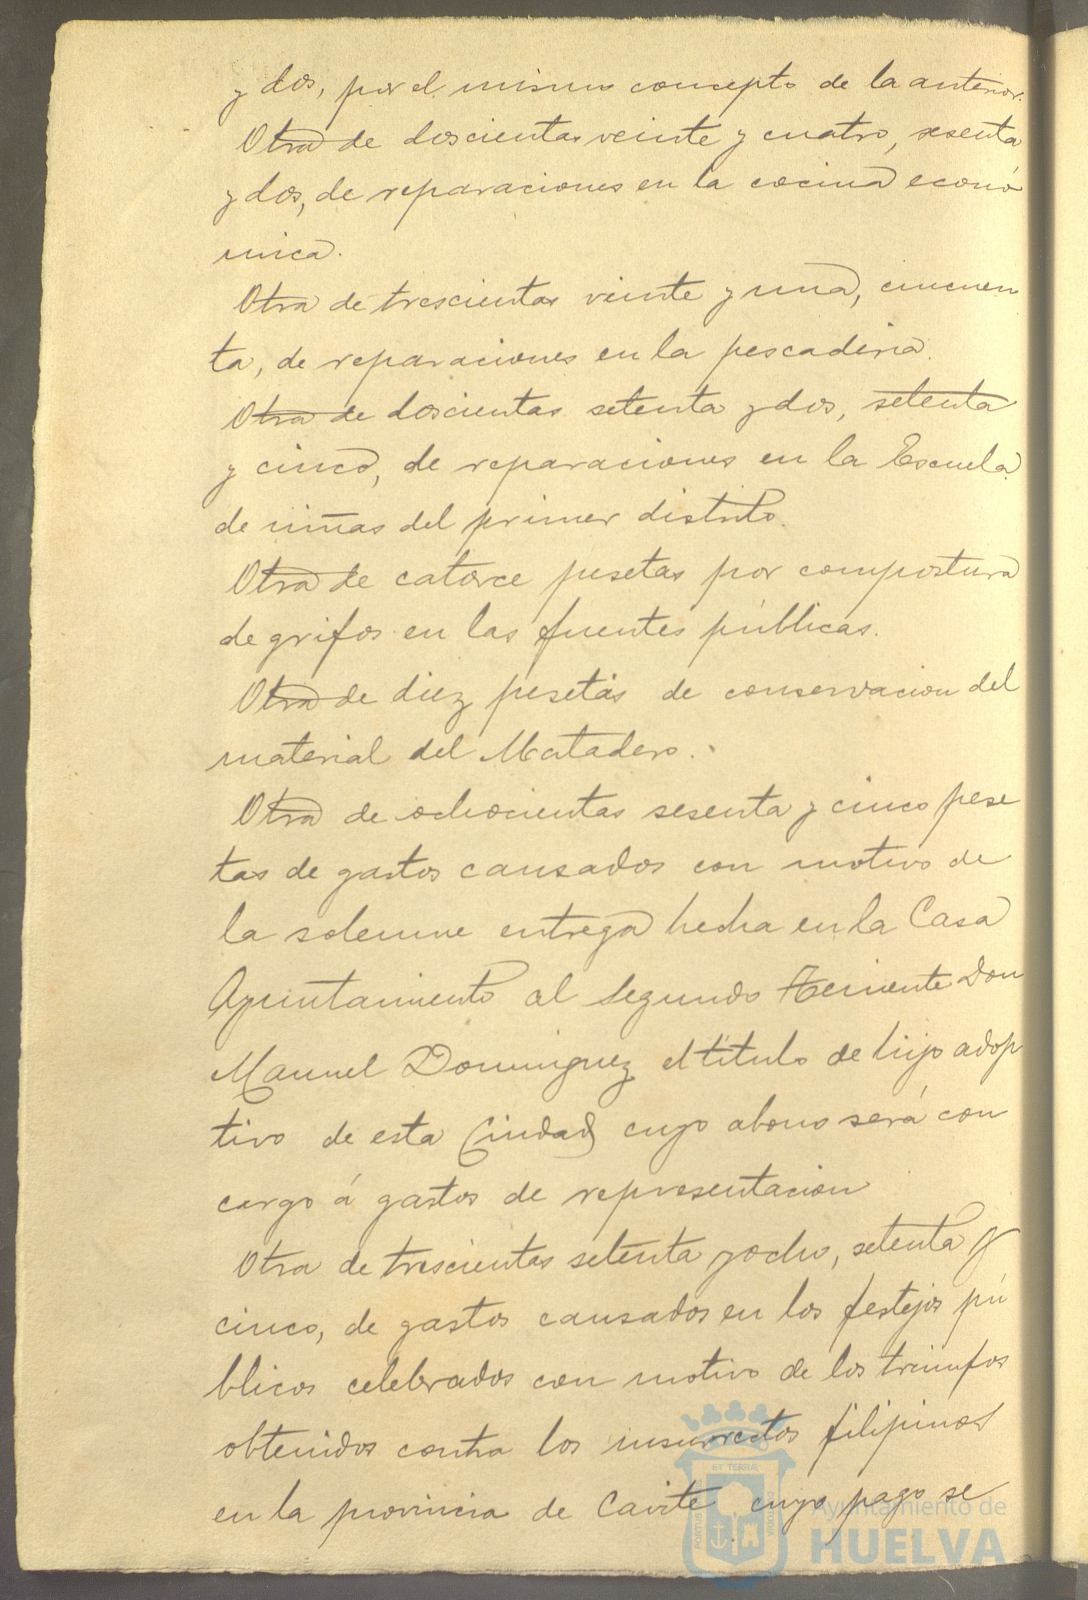 y dos, por el mismo concepto de la anterior.
Otra de doscientas veinte y cuatro, sesenta
y dos, de reparaciones en la cocina econó
mica.
Otra de trescientas veinte y una, cincuen
ta, de reparaciones en la pescaderia.
Otra de doscientas setenta y dos, setenta
y cinco, de reparaciones en la Escuela
de niñas del primer distrito.
Otra de catorce pesetas por compostura
de grifos en las fuentes públicas.
Otra de diez pesetas de conservacion del
material del Matadero.
Otra de ochocientas sesenta y cinco pese
tas de gastos causados con motivo de
la solemne entrega hecha en la Casa
Ayuntamiento al Segundo Teniente Don
Manuel Dominguez el título de hijo adop
tivo de esta Ciudad cuyo abono será con
cargo á gastos de representacion
Otra de trescientas setenta y ocho, setenta y
cinco, de gastos causados en los festejos pú
blicos celebrados con motivo de los triunfos
obtenidos contra los insurrectos filipinos
en la provincia de Cavite cuyo pago se
Ayuntamiento de
HUELVA